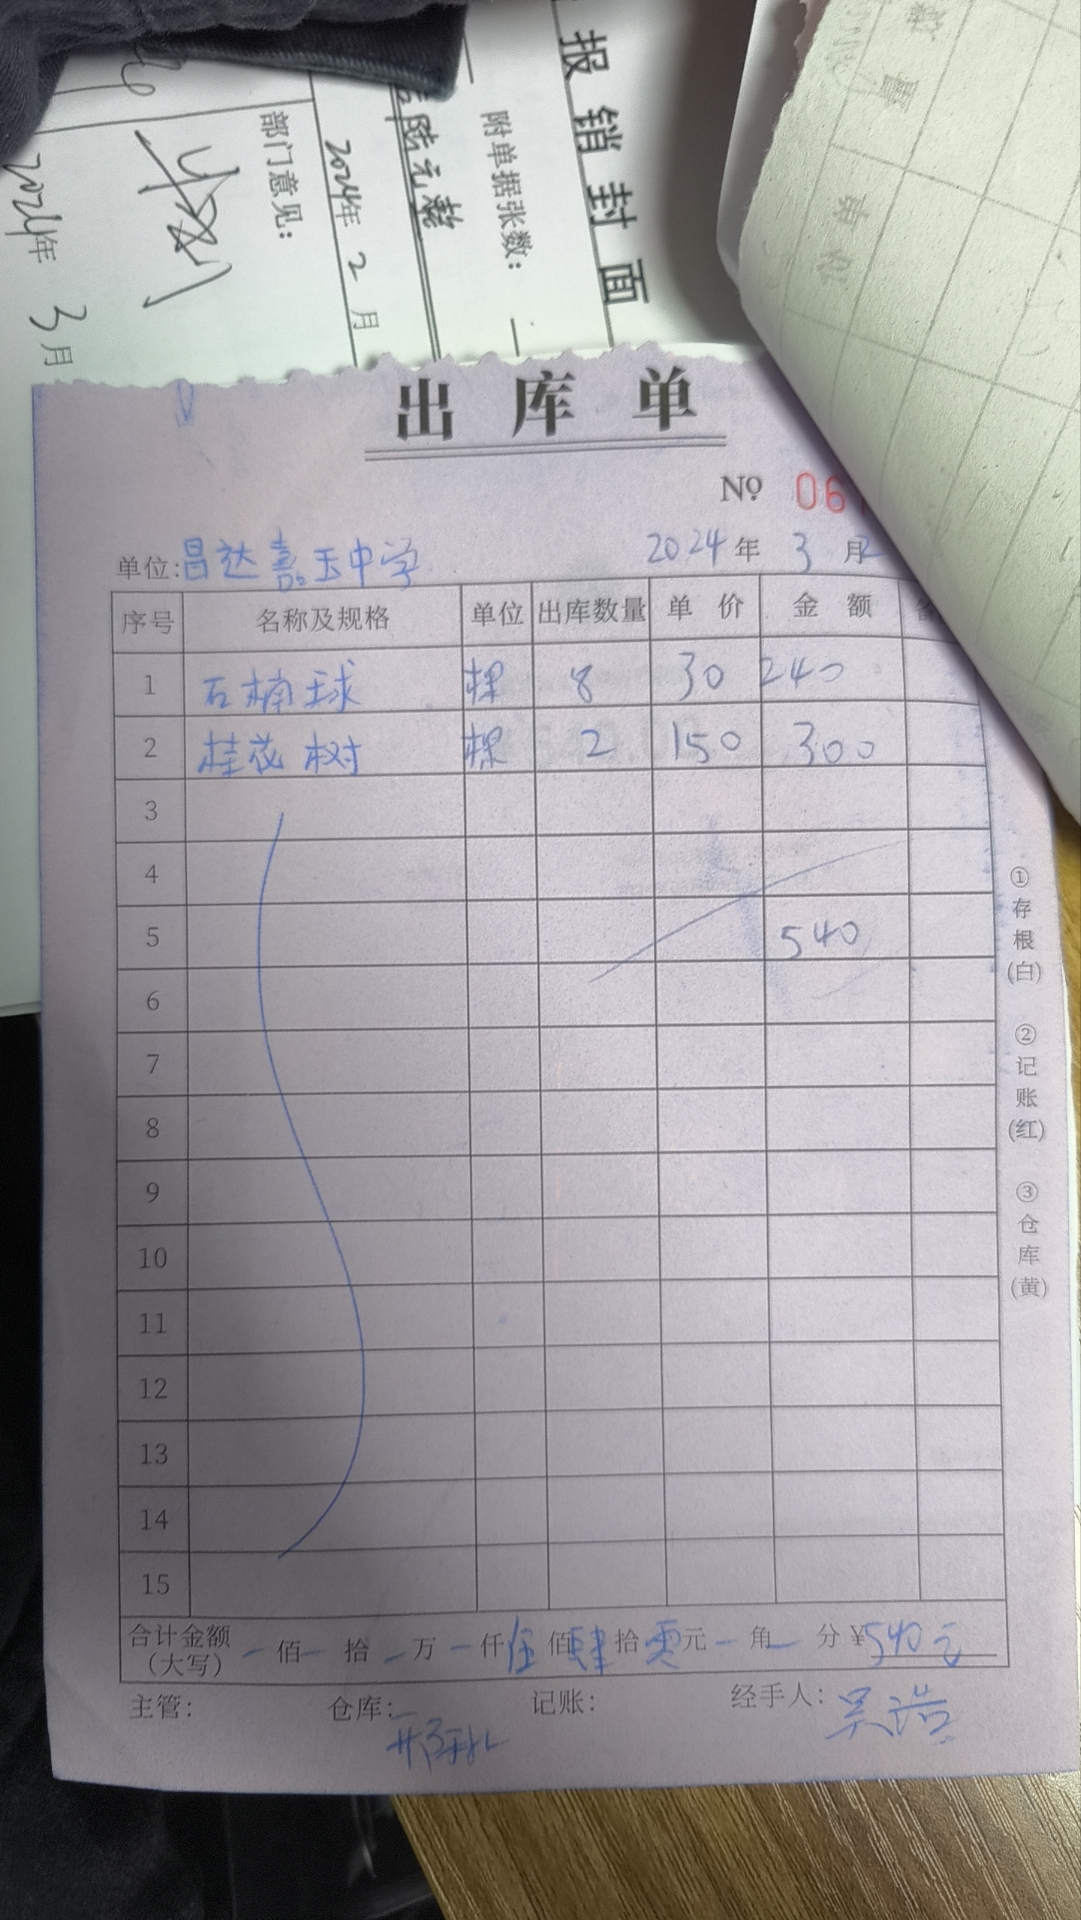 报销封面
附单据张数：
2024年2月
部门意见：
2024年3月
数量
单位
出库单
№ 06
单位：昌达嘉玉中学 2024年3月2
序号 名称及规格 单位 出库数量 单价 金额
1 石楠球 棵 8 30 240
2 桂花树 棵 2 150 300
3
4
5 540
6
7
8
9
10
11
12
13
14
15
合计金额（大写） 一佰一拾一万一仟伍佰肆拾零元一角一分 ¥540元
主管： 仓库： 记账： 经手人：吴浩
①存根(白) ②记账(红) ③仓库(黄)